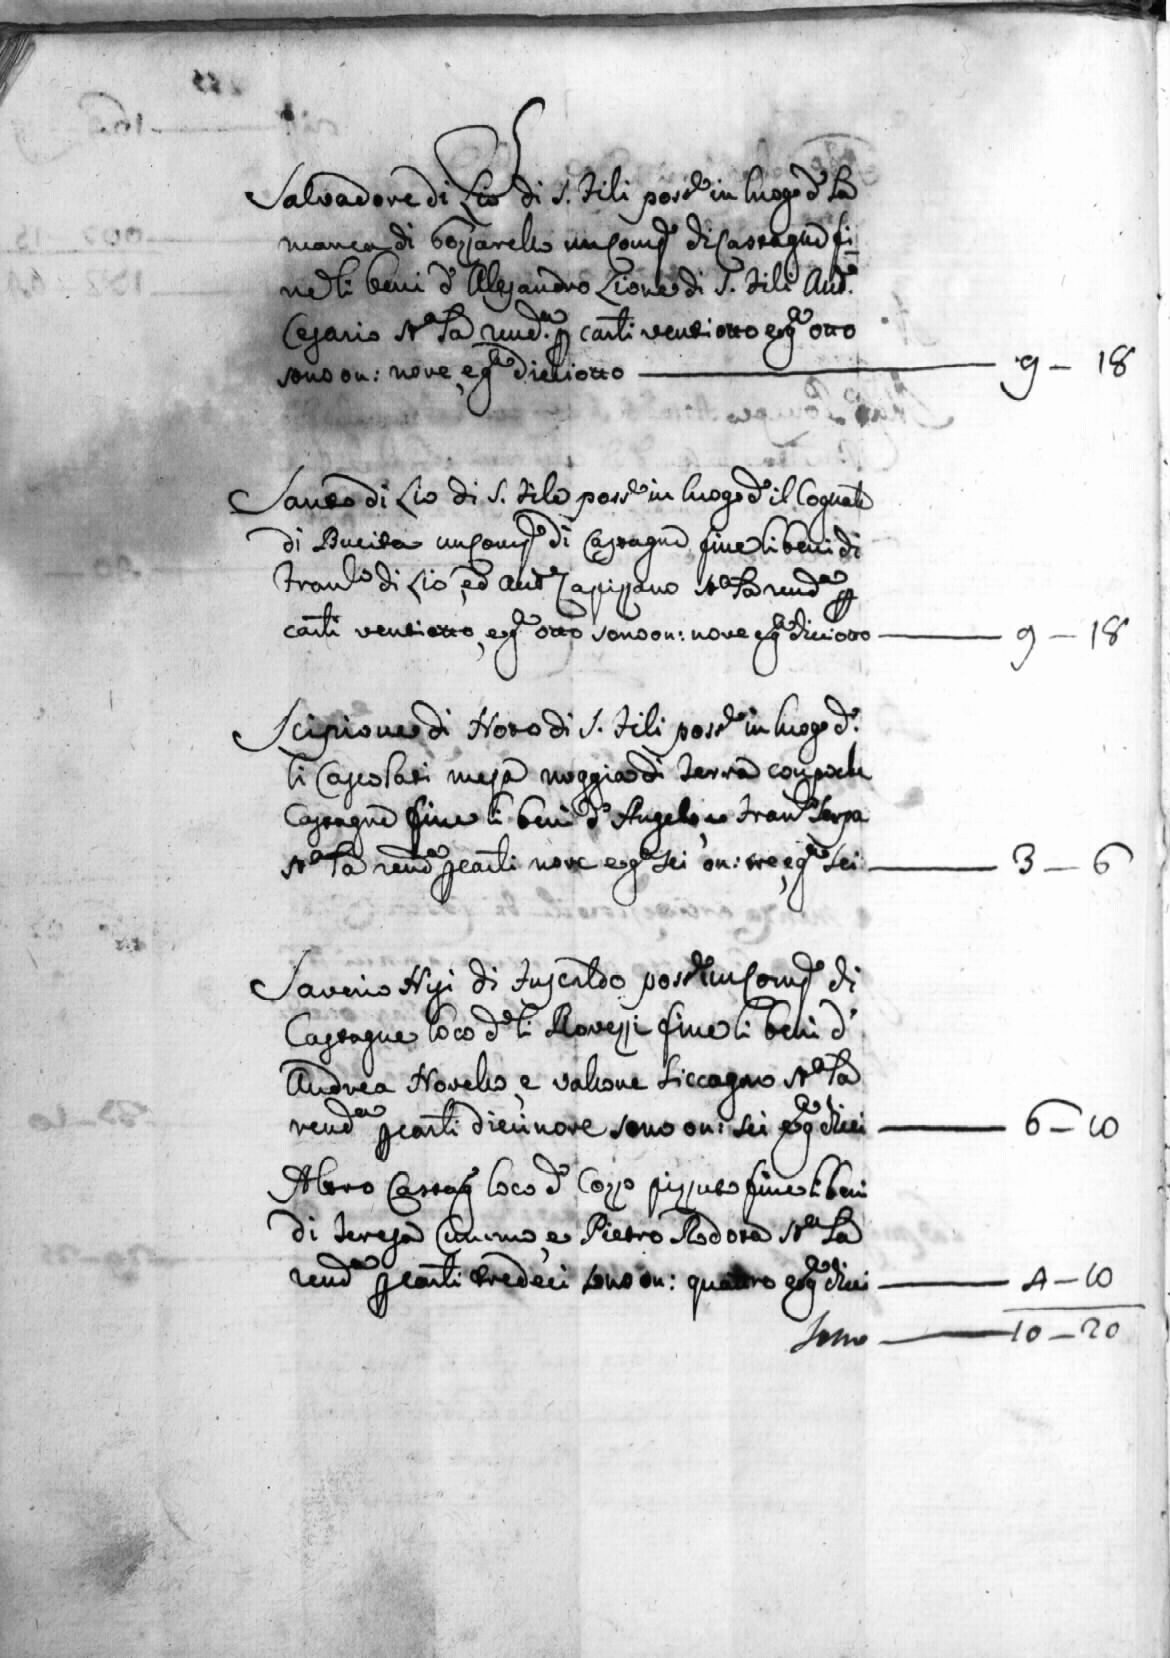 S
Salvadore di Lio di S. Fili poss.e in luogo d.o la
manca di bozzarello un Comp.o di Castagne fi
ne li beni d' Alesandro Lione di S. Fili And.a
Cesario St.a la rend.a p carli ventiotto e g.a otto
sono on: nove, e g.a dieciotto 9 - 18
Santo di Lio di S. File poss.e in luogo d.o il Cognale
di Bucita un Comp.o di Castagne fine li beni di
Fran.co di Lio, ed And.a St.a la rend.a p
carli ventiotto, e g.a otto sono on: nove e g.a dieciotto 9 - 18
Scipione di Noto di S. Fili poss.e in luogo d.o
li Cascolati meza moggiao di terra con poche
Castagne fine li beni d' Angelo, e Fran.co Serpa
St.a la rend.a p carli nove e g.a sei on: tre, e g.a sei 3 - 6
Saverio Nisi di Fuscaldo poss.e un Comp.o di
Castagne loco d.o li Rovezzi fine li beni d'
Andrea Novello, e valione Siccagno St.a la
rend.a p carli diecinove sono on: sei e g.a dieci 6 - 10
Altro Castag.o loco d.o Cozzo pizzuto fine li beni
di Teresa Cimino, e Pietro Rodota St.a la
rend.a p carli tredeci sono on: quattro e g.a dieci 4 - 10
Sono 10 - 20